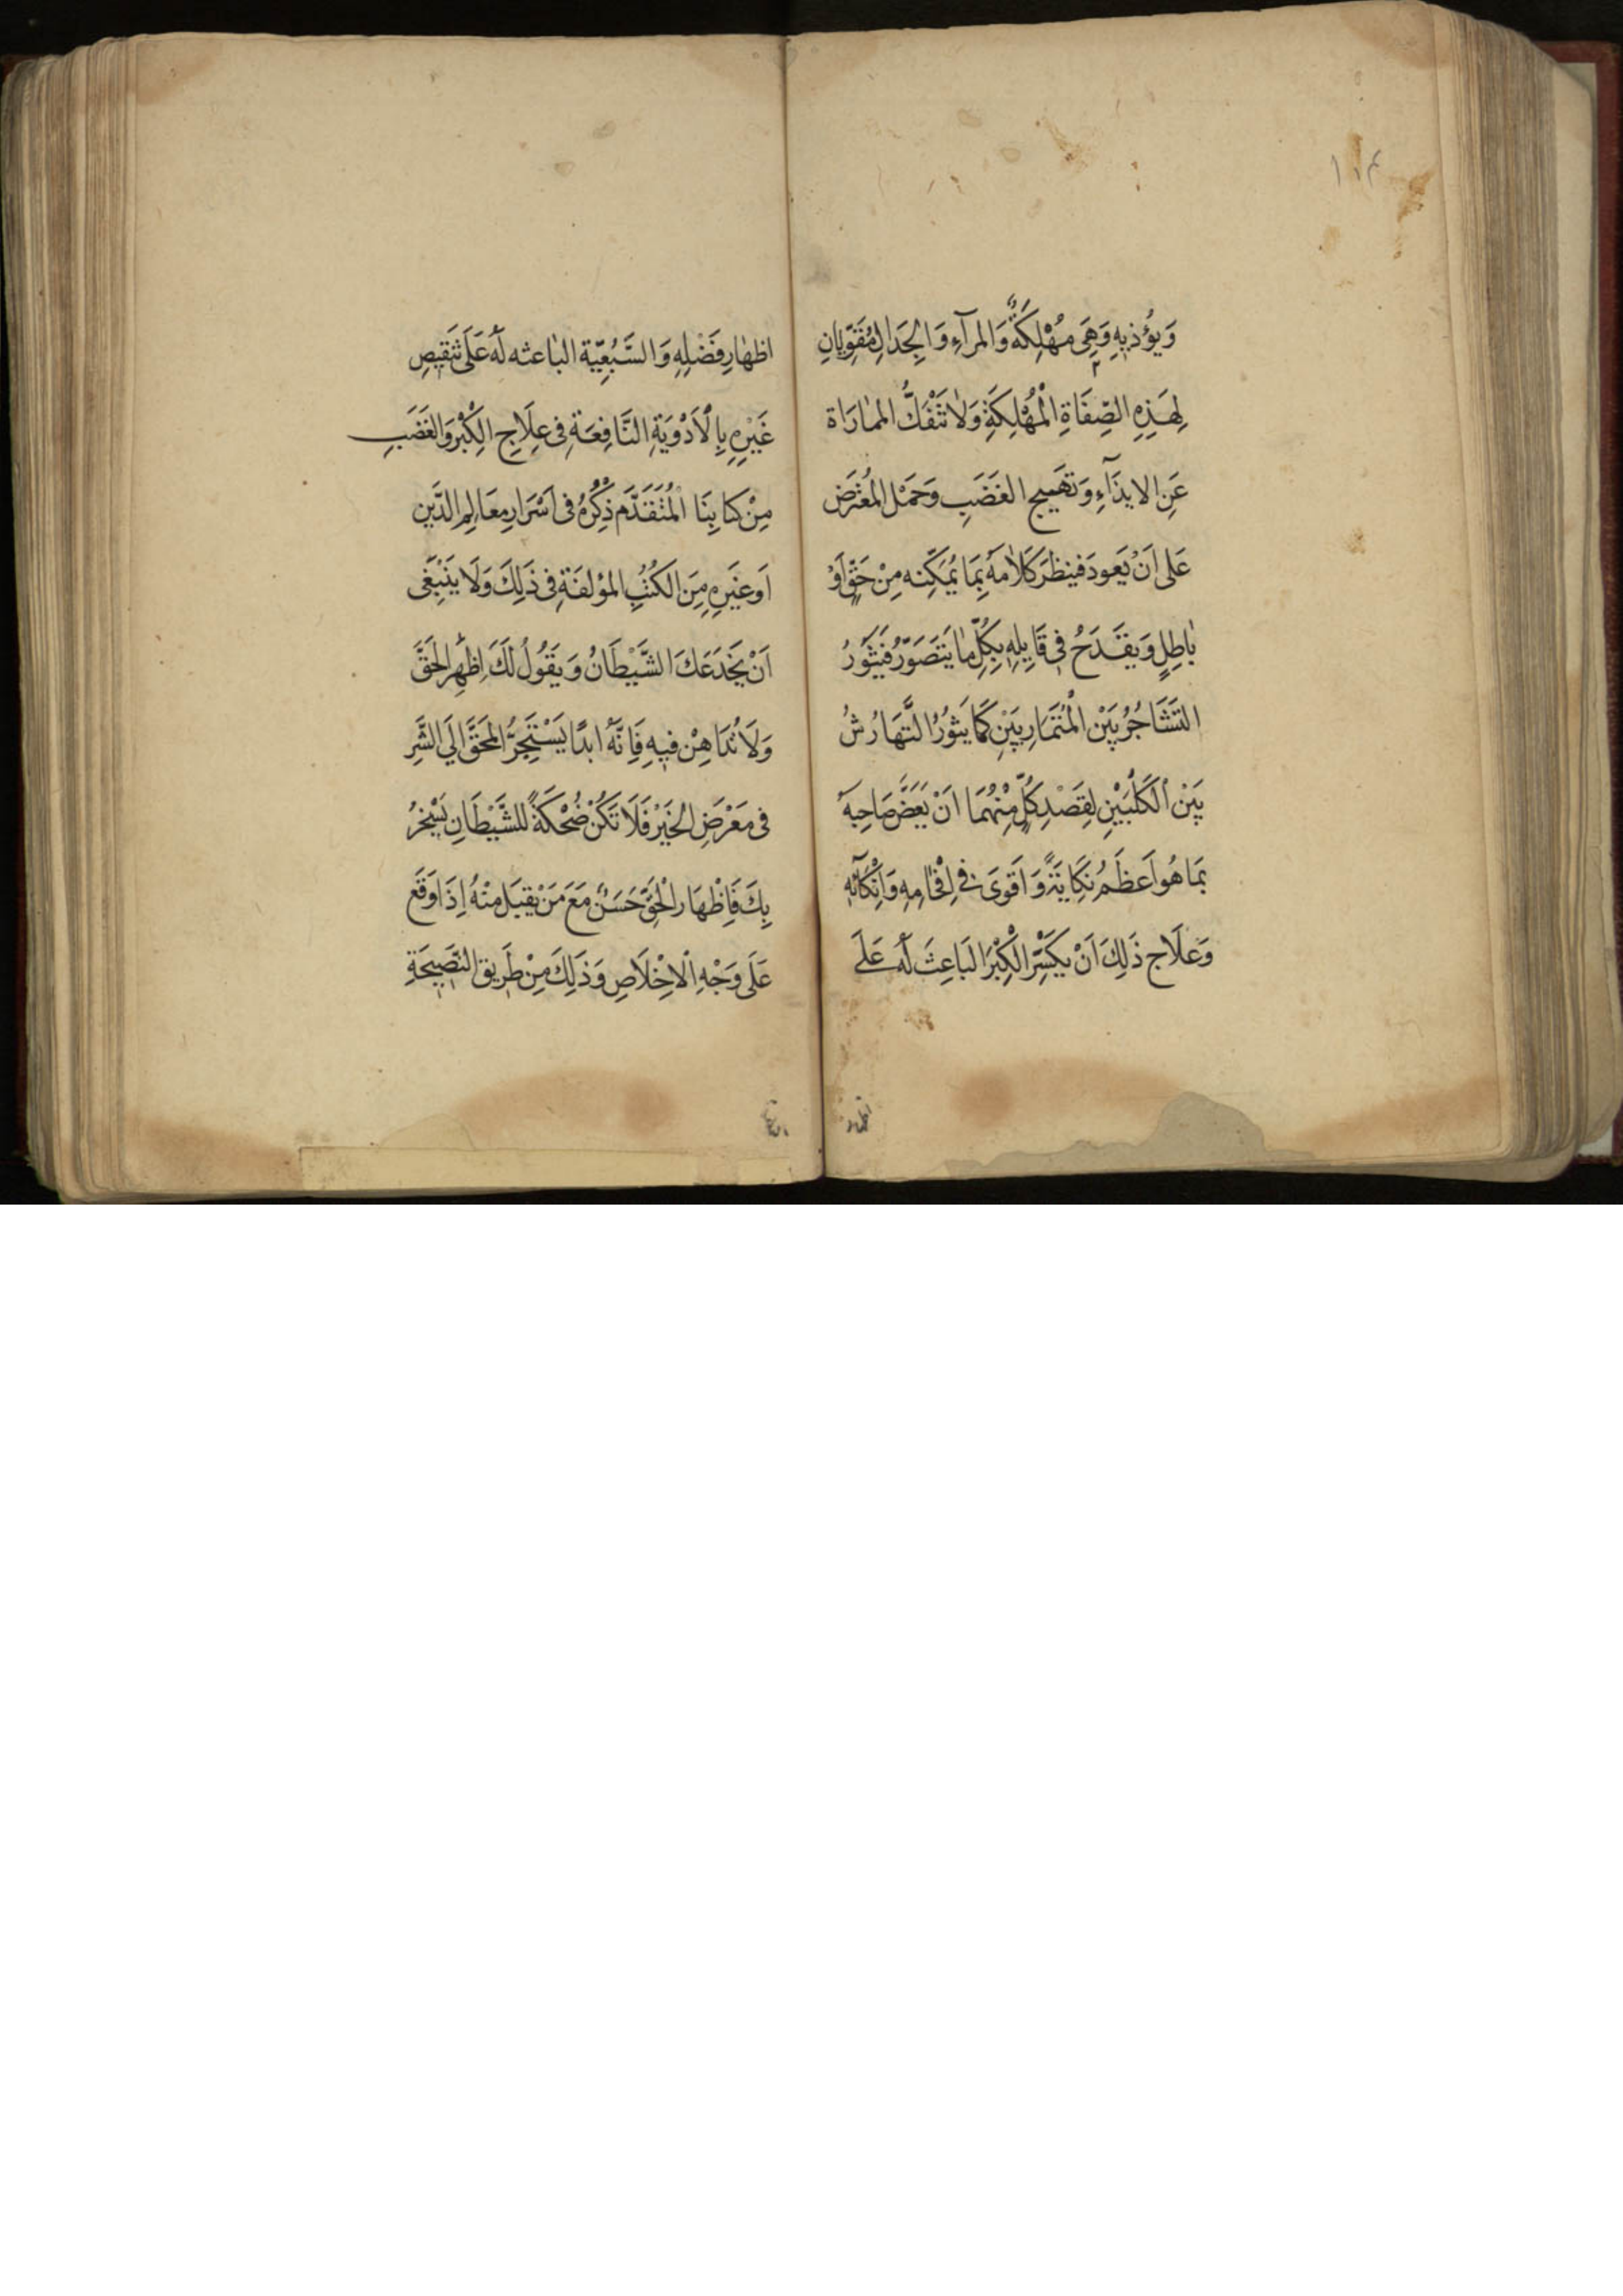 ١١٤
وَيُؤْذيهِ وَهِيَ مُهْلِكَةٌ وَالمرآءِ وَالجِدَال مُقَوِّيَانِ
لِهَذِهِ الصِّفَاةِ الْمُهْلِكَةِ وَلاٰ تَنْفَكُّ المماٰرَاة
عَنِ الايذَآءِ وَتَهَييج الغَضَبِ وَحَمَل المُعْتَرَض
عَلى اَنْ يَعودَ فينظرَ كَلاٰمَهُ بِمَا يُمَكِّنه مِنْ حَقٍّ اَوْ
بٰاطِلٍ وَيقَدَحُ فِى قَايِلِهِ بِكُلِّ مٰا يَتَصَوَّرُ فَيَثَوَرُ
التَشَاجُرُ بَيْن الْمُتَمَاريَيْنِ كَمَا يَثوُرُ التَّهَارُشُ
بَيْن الْكَلْبَيْنِ لِقَصْدِ كُلٍّ مِنْهُمَا اَنْ يَعَضَّ صَاحِبَهُ
بَمَا هُوَ اَعظَمُ نِكَايَةً وَ اَقوَى فى اِفْحٰامِهِ وَاِنْكَآئِهِ
وَعلَاج ذَلِكَ اَنْ يكَسِّرَ الْكِبْرَ البَاعِثَ لَهُ عَلَى
اظهار
اظهٰارِ فَضْلِهِ وَ السَّبُعِيّة البٰاعثه لَهُ عَلَى تَنْقيصِ
غَيْرِهِ بِالْأَدْوِيَةِ النَّافِعَةِ فى عِلَاجِ الكِبْرِ وَالغَضَبِ
مِنْ كتَابِنَا الْمُتَقَدَّم ذِكْرُهُ فى اَسْرَارِ مَعَالِمِ الدَّيَنِ
اَو غَيَرِهِ مِنَ الكُتُبِ المؤلفَةِ فى ذَلِكَ وَلَا يَنْبَغَى
اَنْ يَخَدَعَكَ الشَّيْطَانُ وَ يَقُولُ لَكَ اِظْهِر الحَقَّ
وَلَا تُدَاهِنْ فيهِ فَاِنَّهُ ابدًا يَسْتَجِرُّ المحَقَّ الي الشَّرِ
فى مَعْرَضِ الخَيْرِ فَلَا تَكُنْ ضُحْكَةً للشَّيْطَانِ يَسْخِرُ
بِكَ فَاِظْهَار الْحَقِّ حَسَنٌ مَعَ مَنْ يقبَل مِنْهُ اِذَا وَقَعَ
عَلَى وَجْهِ الْاخِلَاصِ وَذَلِكَ مِنْ طَرِيقِ النَّصِيحَةِ